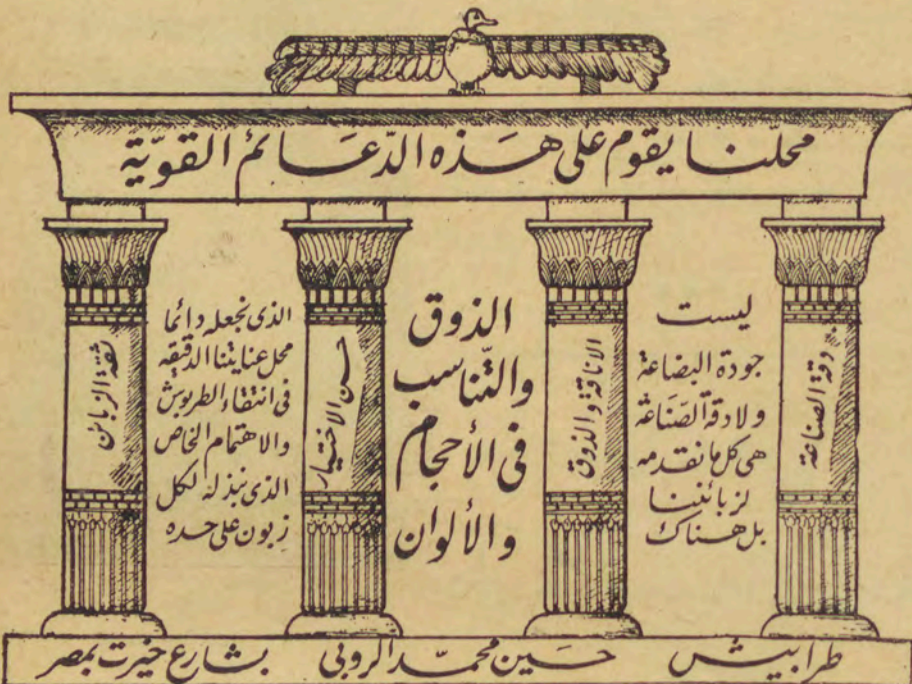 محلّنا يقوم على هذه الدّعائم القويّة
دقة الصناعة
ليست
جودة البضاعة
ولا دقة الصَنَاعة
هى كل ما نقدمه
لزبائننا
بل هناك
الاناقة والذوق
الذوق
والتّناسب
فى الأحجام
والألوان
حسن الاختيار
الذى نجعله دائما
محل عنايتنا الدقيقه
فى انتقاء الطربوش
والاهتمام الخاص
الذى نبذله لكل
زبون على حده
ثقة الزبائن
طرابيش حسين محمّد الروبى بشارع خيرت بمصر